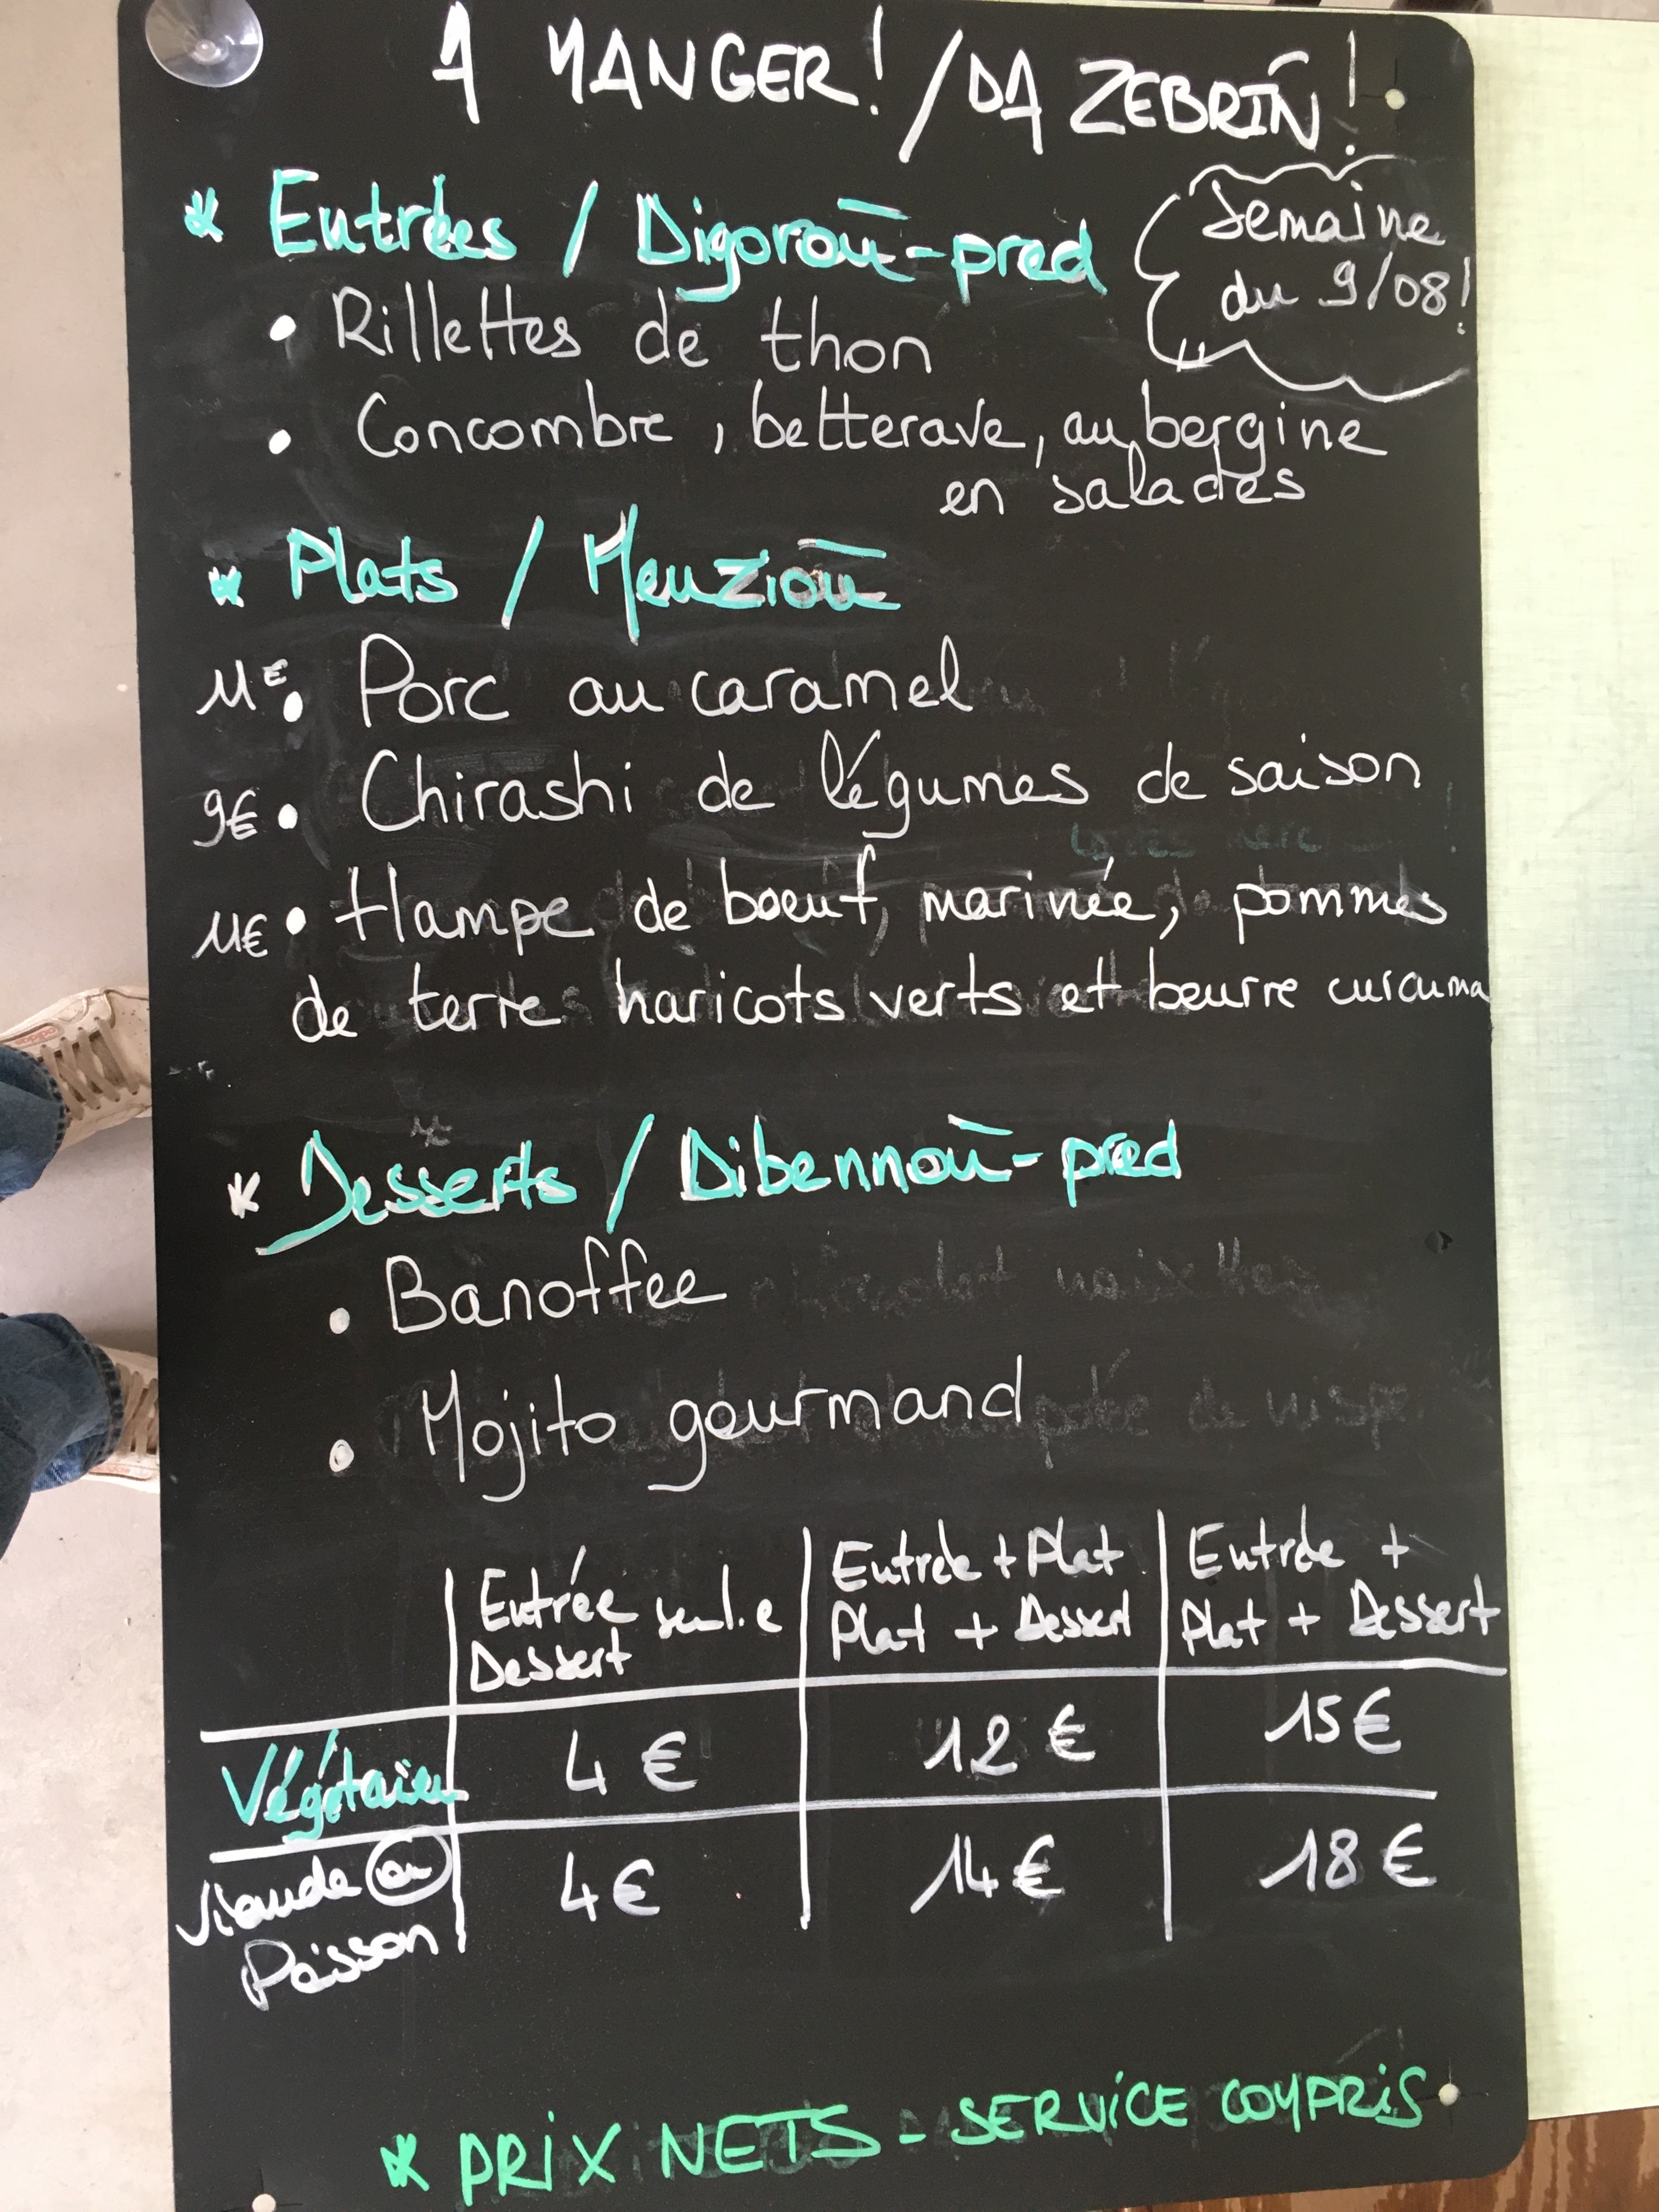 A MANGER! / DA ZEBRIÑ!
* Entrées / Digoroù-pred
Semaine
du 9/08!
• Rillettes de thon
• Concombre, betterave, aubergine
en salades
* Plats / Meuzioù
11€ • Porc au caramel
9€ • Chirashi de légumes de saison
11€ • Hampe de boeuf, marinée, pommes
de terre haricots verts et beurre curcuma
* Desserts / Dibennoù-pred
• Banoffee
• Mojito gourmand
Entrée seul.e
Dessert
Entrée + Plat
Plat + Dessert
Entrée +
Plat + Dessert
Végétarien 4€ 12€ 15€
Viande ou
Poisson
4€ 14€ 18€
* PRIX NETS - SERVICE COMPRIS